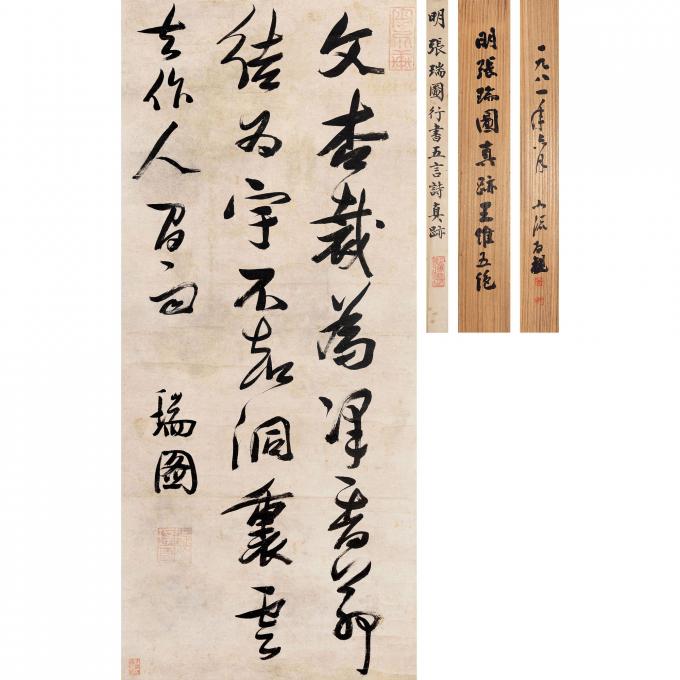 文杏裁為梁香茆
結為宇不知洞裏雲
去作人間雨
瑞圖
明張瑞圖行書五言詩真跡
明張瑞圖真跡王惟五絕
一九八一年六月